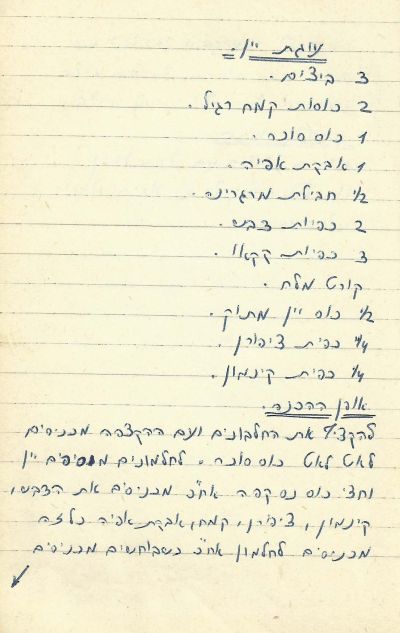 עוגת יין.
3 ביצים.
2 כוסות קמח רגיל.
1 כוס סוכר.
1 אבקת אפיה.
1/2 חבילת מרגרינה.
2 כפיות דבש.
3 כפיות קקאו.
קורט מלח.
1/2 כוס יין מתוק.
1/4 כפית ציפורן.
1/4 כפית קינמון.
אופן ההכנה.
להקציף את החלבונים ועם ההקצפה מכניסים
לאט לאט כוס סוכר. לחלמונים מוסיפים יין
וחצי כוס נס קפה אח"כ מכניסים את הדבש,
קינמון, ציפורן, קמח, אבקת אפיה כל זה
מכניסים לחלמון אח"כ כשבוחשים מכניסים